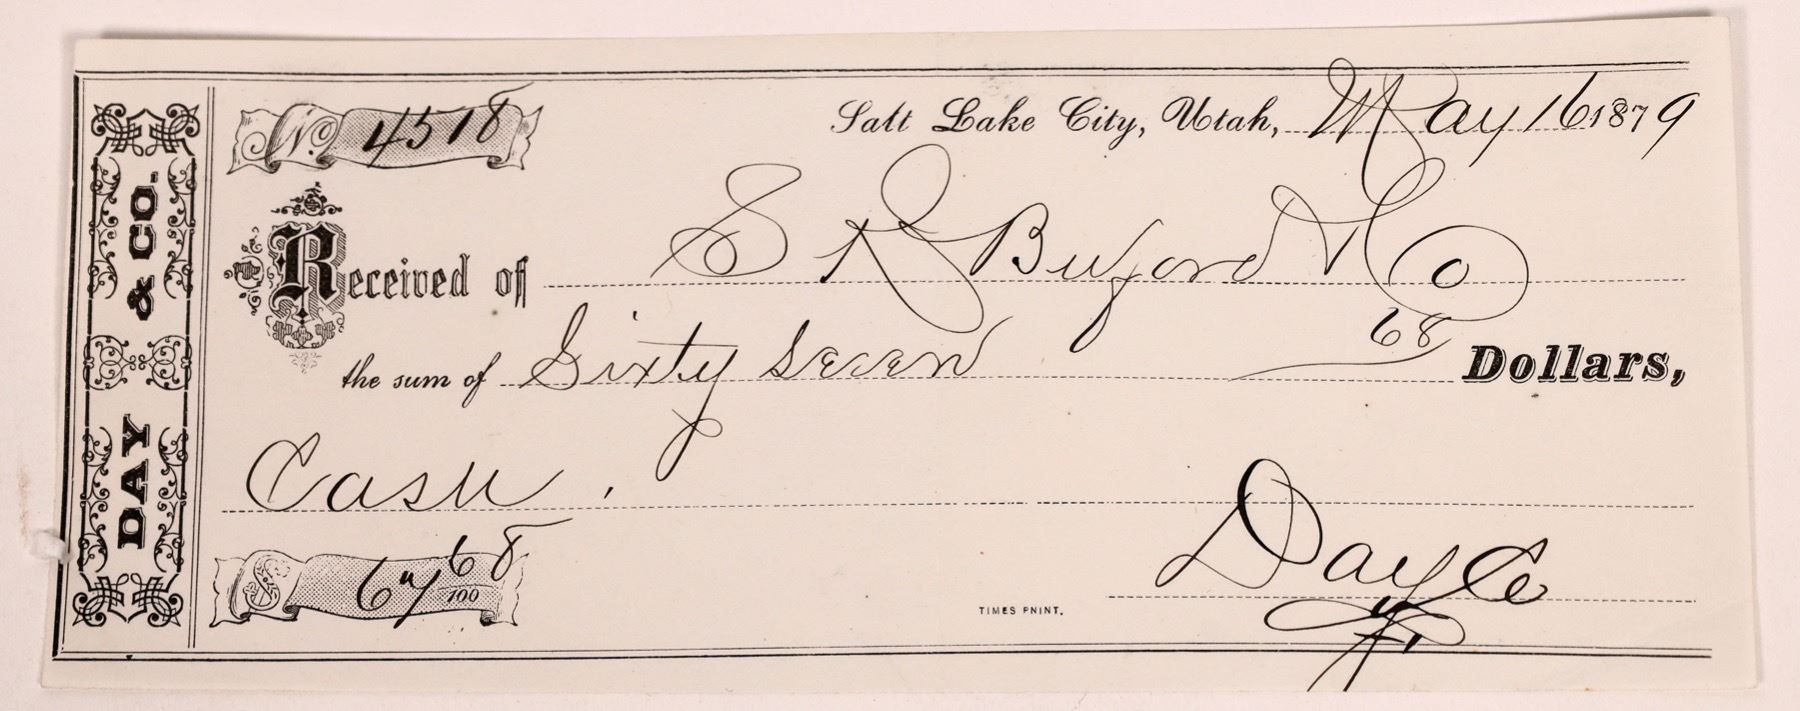 DAY & CO.
No. 4518
Salt Lake City, Utah, May 16 1879
Received of S R Buford & Co
the sum of Sixty Seven 68 Dollars,
Cash.
$ 67 68/100
Day & Co
TIMES PRINT.